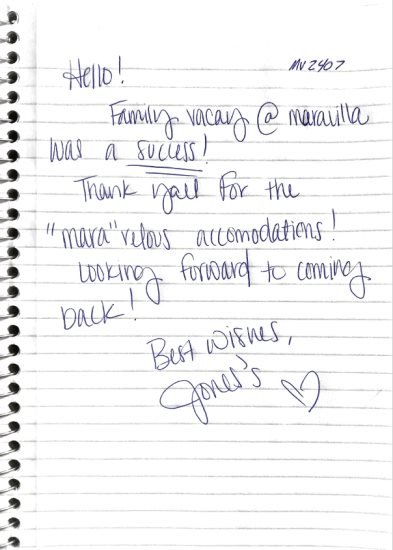 MV2407
Hello!
Family vacay @ maravilla
was a success!
Thank yall for the
"mara"velous accomodations!
Looking forward to coming
back!
Best wishes,
Jones's